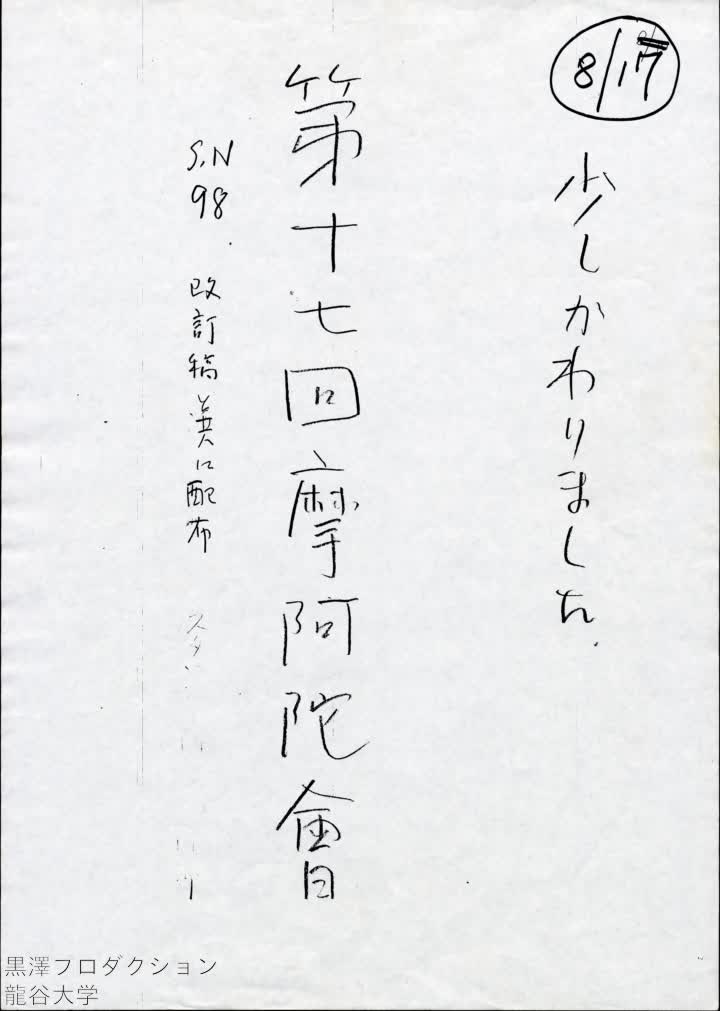 8/17
少しかわりました.
第十七回摩阿陀會
S.N
98
改訂稿 美に配布
黒澤プロダクション
龍谷大学